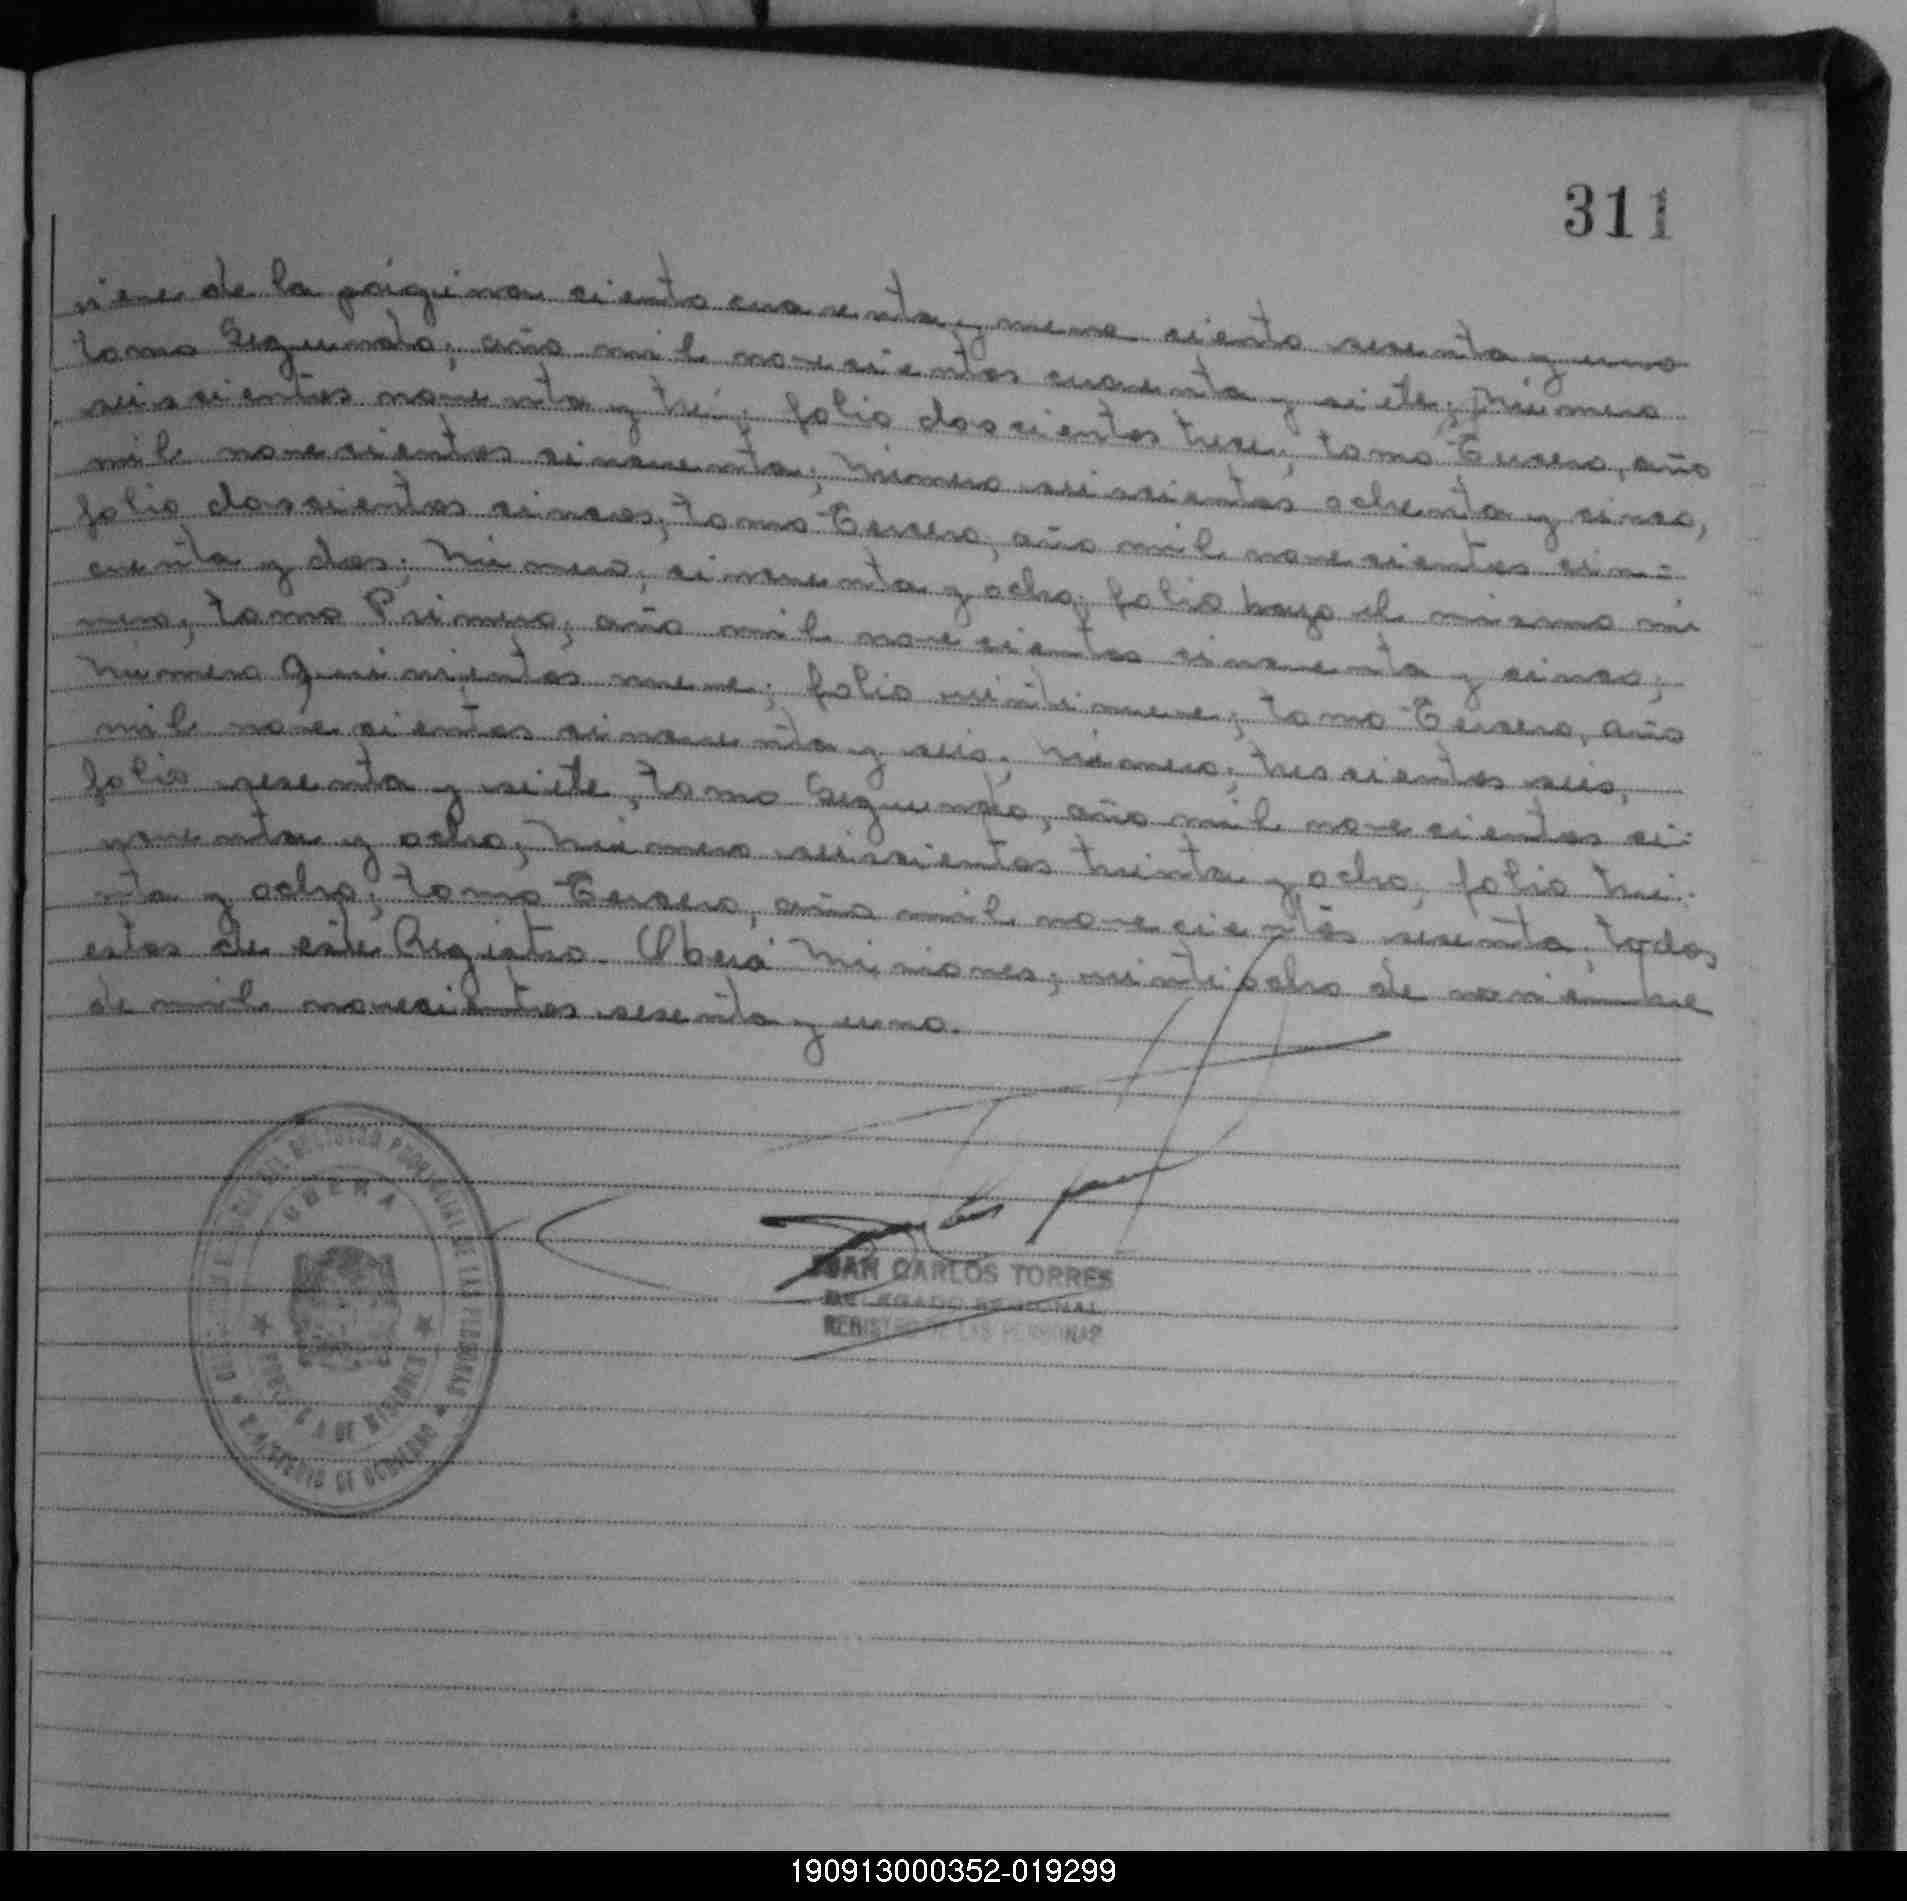 311
viene de la página ciento cuarenta y nueve ciento sesenta y uno
tomo Segundo; año mil novecientos cuarenta y siete; Número
seiscientos noventa y tré; folio doscientos trece; tomo Tercero, año
mil novecientos cincuenta; Número seiscientos ochenta y cinco,
folio doscientos cincos; tomo Tercero; año mil novecientos cin=
cuenta y dos; Número; cincuenta y ocho; folio bajo el mismo nú
mero; tomo Primero; año mil novecientos cincuenta y cinco;
Número Quinientos nueve; folio veintinueve; tomo Tercero, año
mil novecientos cincuenta y seis; Número; trescientos seis,
folio sesenta y siete, tomo Segundo; año mil novecientos ci-
ncuenta y ocho; Número seiscientos treinta y ocho; folio trei-
nta y ocho; tomo Tercero, año mil novecientos sesenta; todos
estos de este Registro. Oberá Misiones; veintiocho de noviembre
de mil novecientos sesenta y uno.
REGISTRO PROVINCIAL DE LAS PERSONAS
OBERA
DE MISIONES
MINISTERIO DE GOBIERNO
JUAN CARLOS TORRES
DELEGADO REGIONAL
REGISTRO DE LAS PERSONAS
190913000352-019299